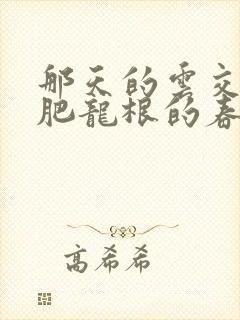 那天的雲交
肥龍根的春
高希希